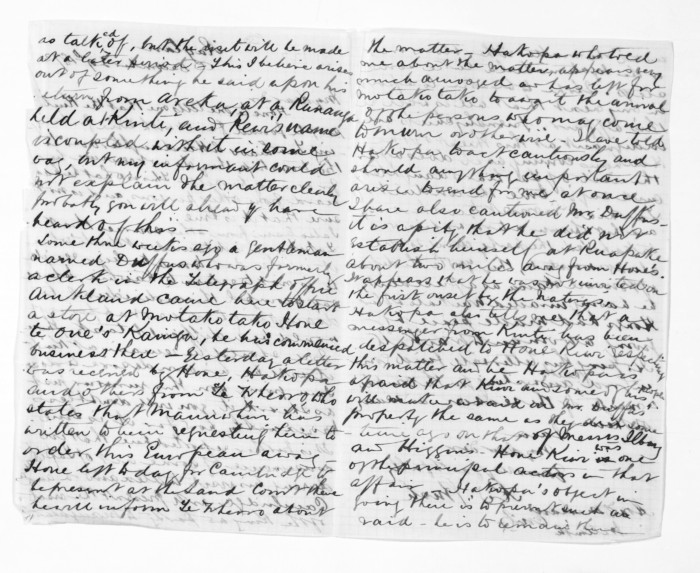 so talked of, but the visit will be made
at a later period. This I believe arises
out of something he said upon his
return from Areka, at a Runanga
held at Kuiti, and Rewi's name
is coupled with it in some
way, but my informant could
not explain the matter clearly
Probably you will already have
heard of this —
Some three weeks ago a gentleman
named Duffus who was formerly
a clerk in the Telegraph office
Auckland came here to start
a store at Motakotako Hone
te One's Kainga, he has commenced
business there — Yesterday a letter
was received by Hone, Hakopa
and others from Te Wheoro who
states that Manuwhiri has
written to him requesting him to
order this European away
Hone left to day for Cambridge to
be present at the Land Court there
he will inform Te Wheoro about
the matter — Hakopa who told
me about the matter, appears very
much annoyed and has left for
Motakotako to await the arrival
of the persons who may come
to turn on the
I have told
Hakopa to act cautiously and
should anything important
arise to send for me at once
I have also cautioned Mr. Duffus
it is a pity that he did not
establish himself at Ruapuke
about two miles away from Hone's.
It appears that he was not invited on
the first onset by the natives
Hakopa also tells me that a
messenger from Kuiti has been
despatched to Hone Kiwi respecting
this matter and he Hakopa is
afraid that Kiwi and some of his people
will make a raid on Mr. Duffus'
property the same as they did some
time ago on that of Messrs
and Higgins. Hone Kiwi was one
of the principal actors in that
affair Hakopa's object in
going there is to prevent such a
raid — he is to remain there